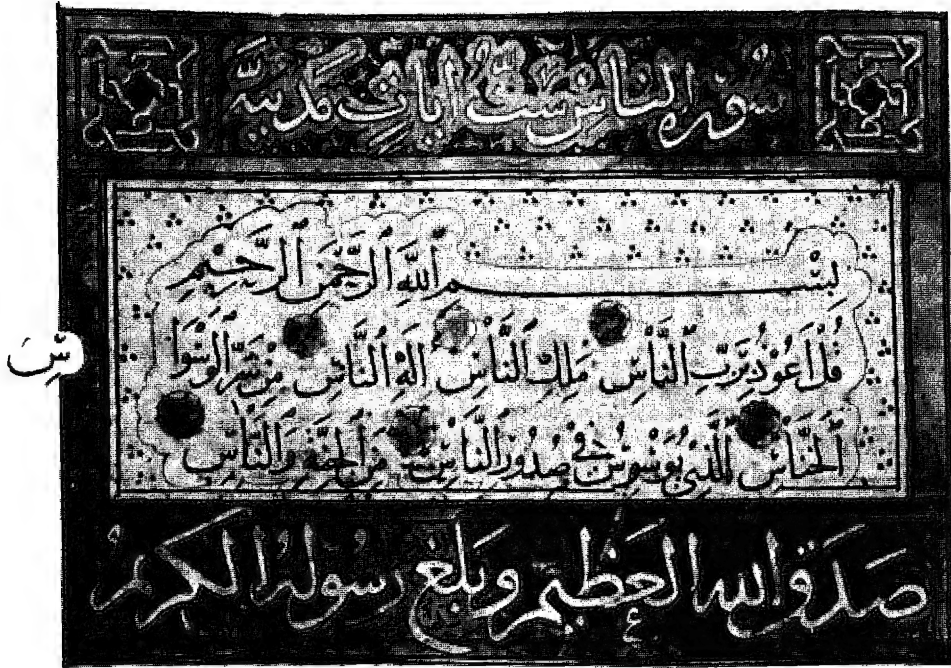 سورة الناس ست ايات مدنية
بِسْمِ ٱللَّهِ ٱلرَّحْمَٰنِ ٱلرَّحِيمِ
قُلْ أَعُوذُ بِرَبِّ ٱلنَّاسِ مَلِكِ ٱلنَّاسِ إِلَٰهِ ٱلنَّاسِ مِنْ شَرِّ ٱلْوَسْوَا
سِ
ٱلْخَنَّاسِ ٱلَّذِي يُوَسْوِسُ فِي صُدُورِ ٱلنَّاسِ مِنَ ٱلْجِنَّةِ وَٱلنَّاسِ
صدق الله العظيم وبلغ رسوله الكريم